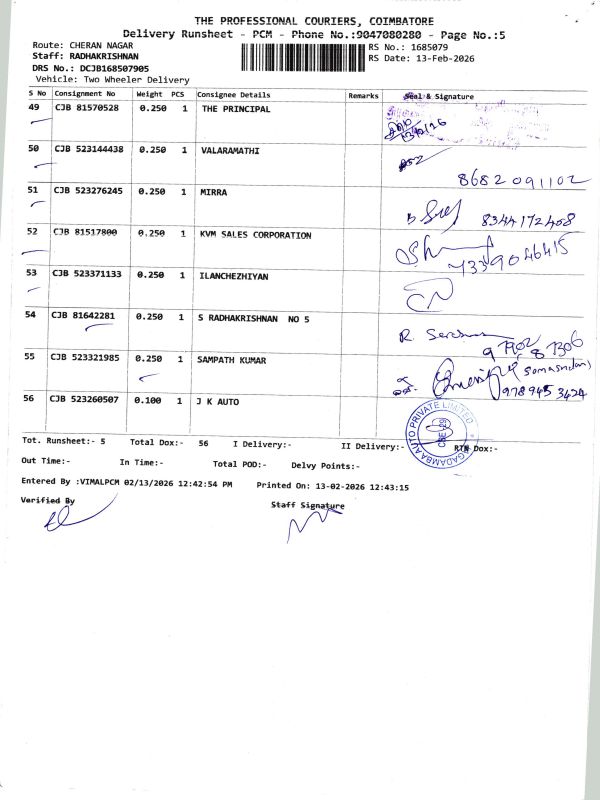 THE PROFESSIONAL COURIERS, COIMBATORE
Delivery Runsheet - PCM - Phone No.:9047080280 - Page No.:5
Route: CHERAN NAGAR
Staff: RADHAKRISHNAN
DRS No.: DCJB168507905
Vehicle: Two Wheeler Delivery
RS No.: 1685079
RS Date: 13-Feb-2026
S No Consignment No Weight PCS Consignee Details Remarks Seal & Signature
49 CJB 81570528 0.250 1 THE PRINCIPAL
50 CJB 523144438 0.250 1 VALARAMATHI
8682091102
51 CJB 523276245 0.250 1 MIRRA
8344172408
52 CJB 81517800 0.250 1 KVM SALES CORPORATION
7339046415
53 CJB 523371133 0.250 1 ILANCHEZHIYAN
54 CJB 81642281 0.250 1 S RADHAKRISHNAN NO 5
R
97902 87306
55 CJB 523321985 0.250 1 SAMPATH KUMAR
978945 3424
56 CJB 523260507 0.100 1 J K AUTO
GADAMBA AUTO PRIVATE LIMITED
CBE 29
Tot. Runsheet:- 5 Total Dox:- 56 I Delivery:- II Delivery:- RTN Dox:-
Out Time:- In Time:- Total POD:- Delvy Points:-
Entered By :VIMALPCM 02/13/2026 12:42:54 PM Printed On: 13-02-2026 12:43:15
Verified By Staff Signature